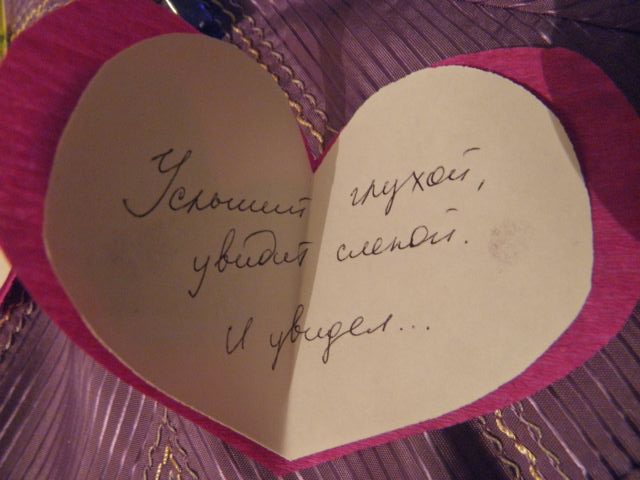 Услышит глухой,
увидит слепой.
И увидел...